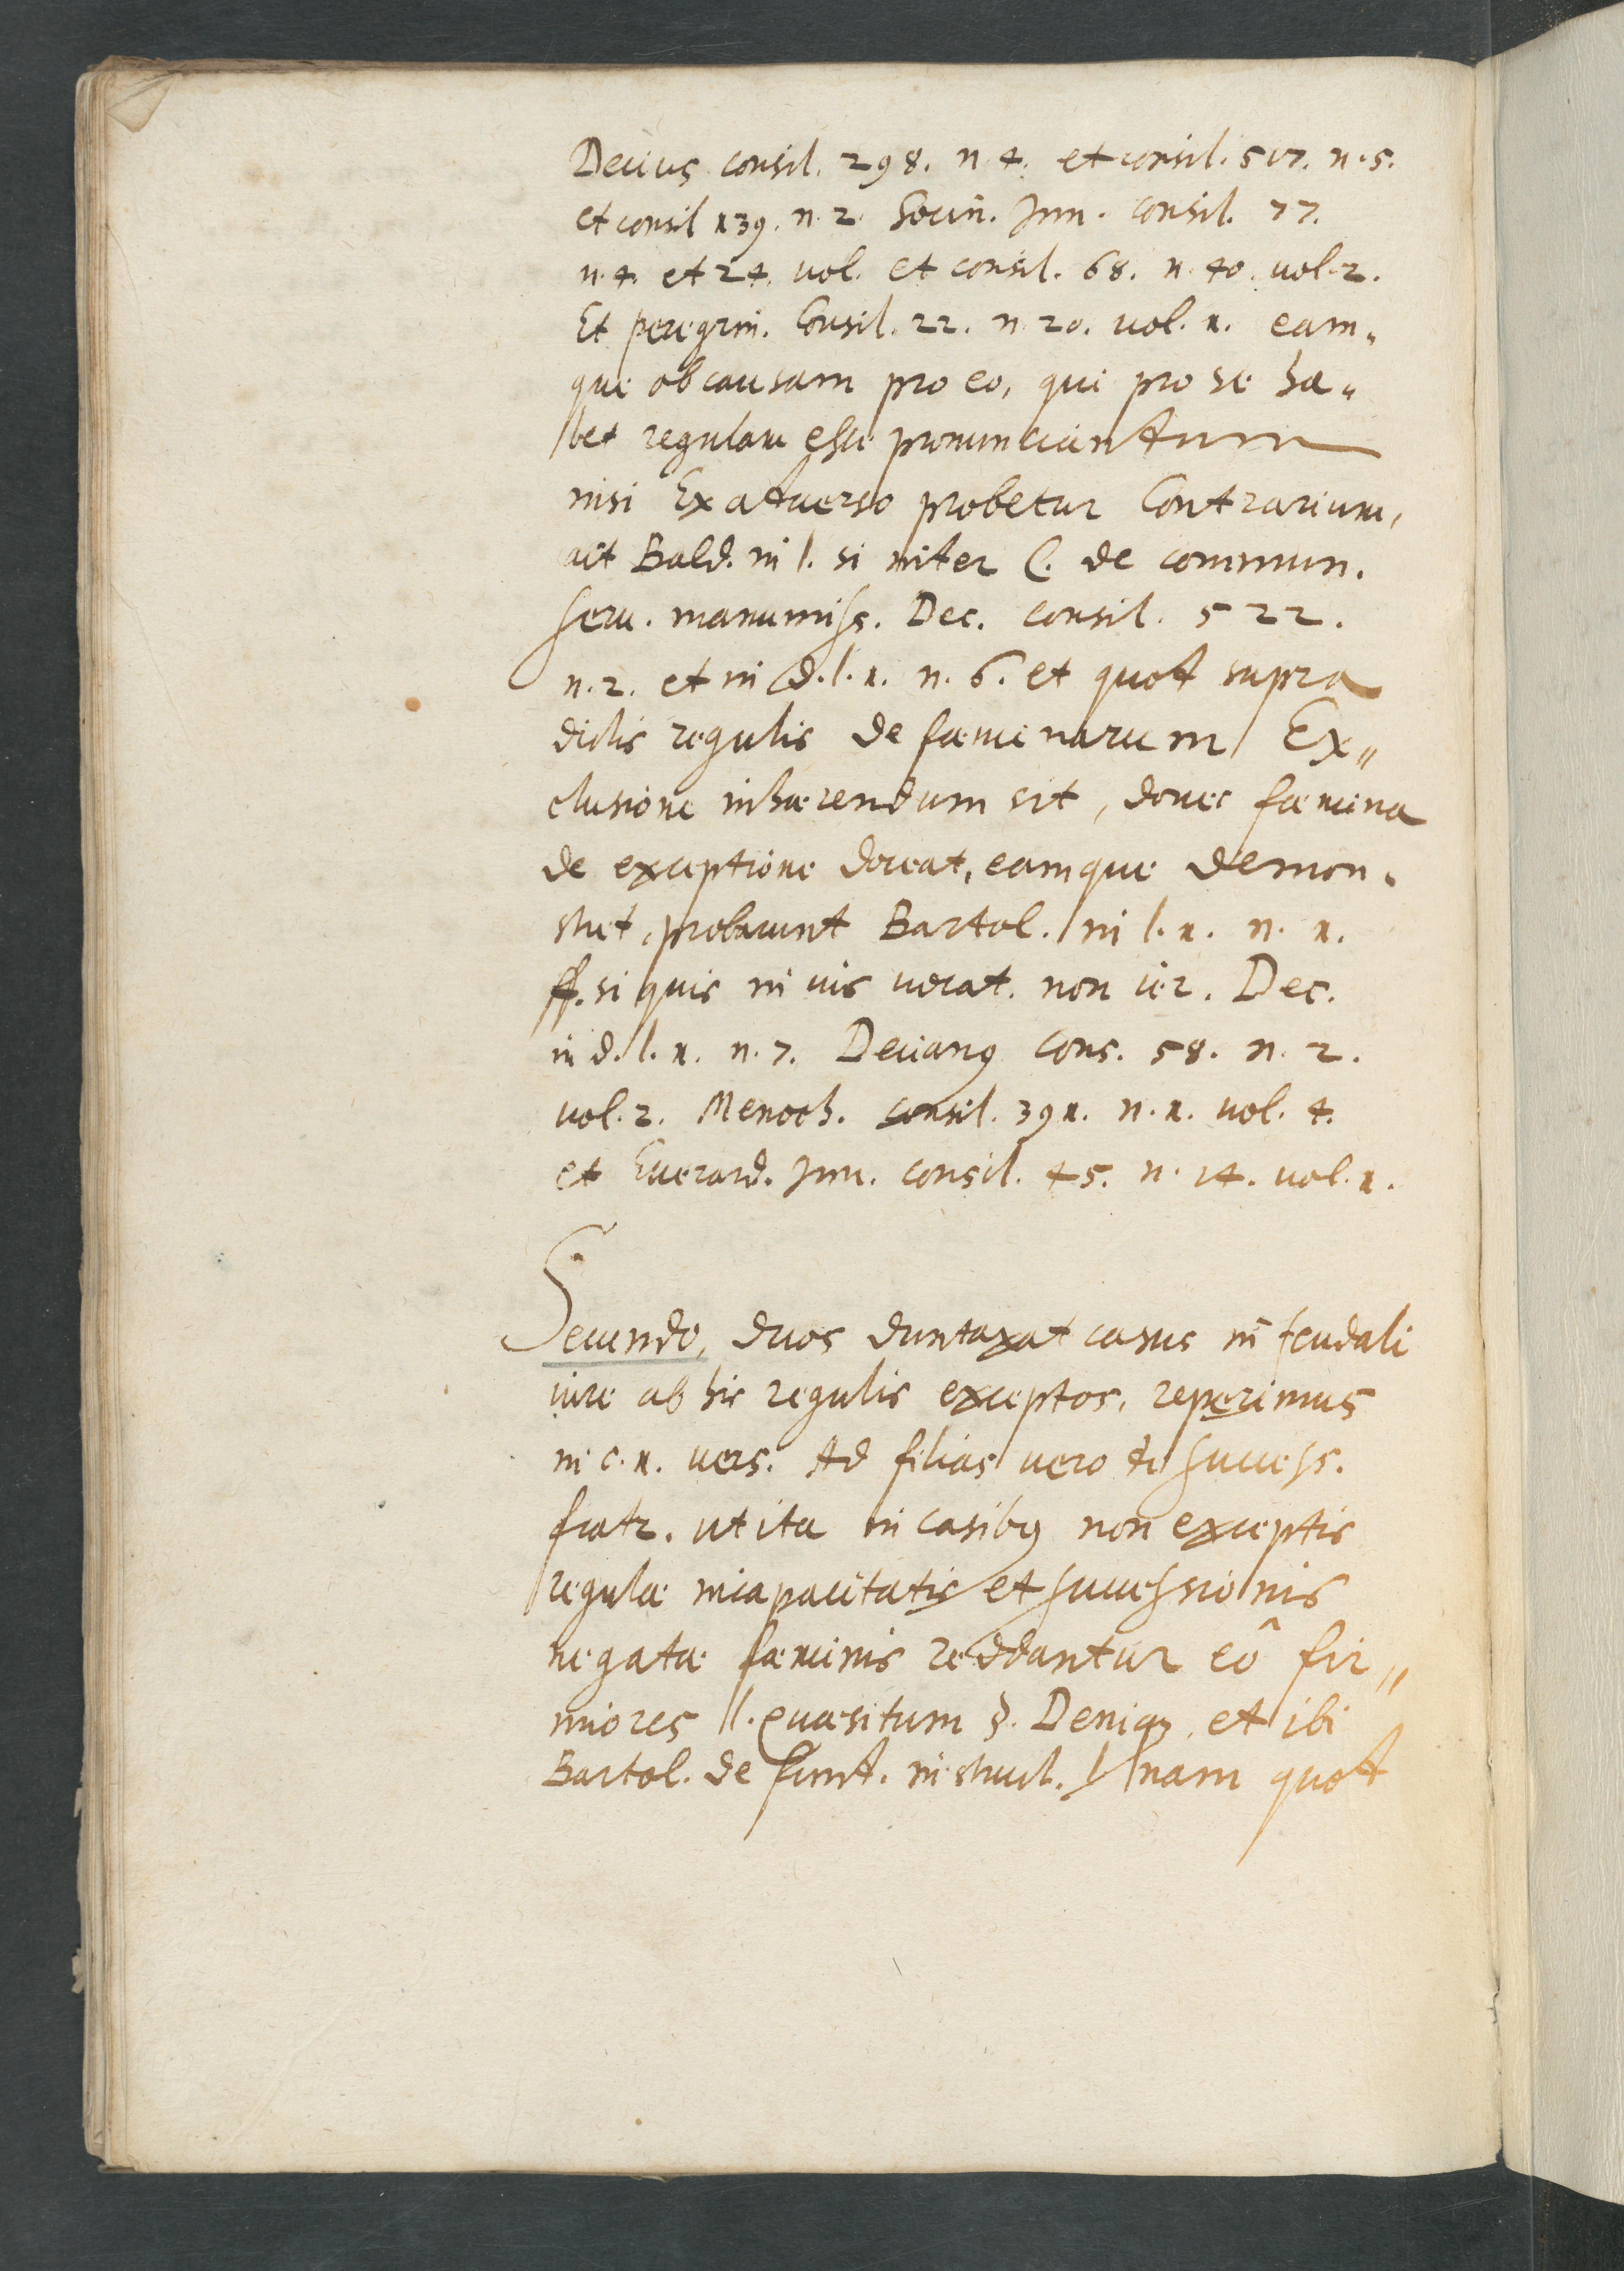 Decius consil. 298. n. 4. et consil. 517. n. 5.
et consil 139. n. 2. Socin. Jun. consil. 77.
n. 4. et 24. vol. et consil. 68. n. 40. vol. 2.
Et peregrin. Consil. 22. n. 20. vol. 1. eam„
que ob causam pro eo, qui pro se ha„
bet regulam esse pronunciandum
nisi Ex aduerso probetur Contrarium,
ait Bald. in l. si inter C. de commun.
seru. manumiss. Dec. consil. 522.
n. 2. et in d. l. 1. n. 6. et quod supra
dictis regulis de fæminarum Ex„
clusione inhærendum sit, donec fæmina
de exceptione doceat, eamque demon„
stret, probarunt Bartol. in l. 1. n. 1.
ff. si quis in ius vocat. non ier. Dec.
in d. l. 1. n. 7. Decianus Cons. 58. n. 2.
vol. 2. Menoch. consil. 391. n. 1. vol. 4.
et Euerard. Jun. consil. 45. n. 14. vol. 1.
Secundo, duos duntaxat casus in feudali
iure ab his regulis exceptos, reperimus
in c. 1. vers. Ad filias vero de success.
fratr. ut ita in casibus non exceptis
regulæ incapacitatis et successionis
negatæ fæminis reddantur eô fir„
miores l. quæsitum §. Denique et ibi
Bartol. de fund. instruct. nam quod